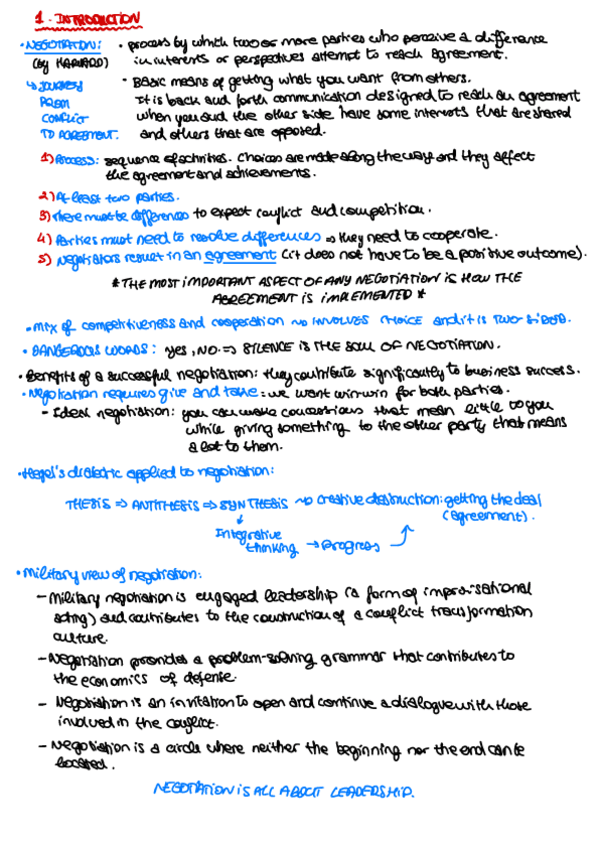 1. INTRODUCTION
• NEGOTIATION: • process by which two or more parties who perceive a difference
(by HARVARD) in interests or perspectives attempt to reach agreement.
↳ JOURNEY • Basic means of getting what you want from others.
FROM It is back and forth communication designed to reach an agreement
CONFLICT when you and the other side have some interests that are shared
TO AGREEMENT. and others that are opposed.
1) Process: sequence of activities. Choices are made along the way and they affect
the agreement and achievements.
2) At least two parties.
3) There must be differences to expect conflict and competition.
4) Parties must need to resolve differences ⇒ they need to cooperate.
5) Negotiators result in an agreement (it does not have to be a positive outcome).
* THE MOST IMPORTANT ASPECT OF ANY NEGOTIATION IS HOW THE
AGREEMENT IS IMPLEMENTED *
• Mix of competitiveness and cooperation ⇝ INVOLVES CHOICE and it is TWO-SIDED.
• DANGEROUS WORDS: yes, NO. ⇒ SILENCE IS THE SOUL OF NEGOTIATION.
• Benefits of a successful negotiation: they contribute significantly to business success.
• Negotiation requires give and take: we want win-win for both parties.
- Ideal negotiation: you can make concessions that mean little to you
while giving something to the other party that means
a lot to them.
• Hegel's dialectic applied to negotiation:
THESIS ⇒ ANTITHESIS ⇒ SYNTHESIS ⇝ creative destruction: getting the deal
(agreement).
↓
Integrative
thinking → Progress
• Military view of negotiation:
- Military negotiation is engaged leadership (a form of improvisational
acting) and contributes to the construction of a conflict transformation
culture.
- Negotiation provides a problem-solving grammar that contributes to
the economics of defense.
- Negotiation is an invitation to open and continue a dialogue with those
involved in the conflict.
- Negotiation is a circle where neither the beginning nor the end can be
located.
NEGOTIATION IS ALL ABOUT LEADERSHIP.